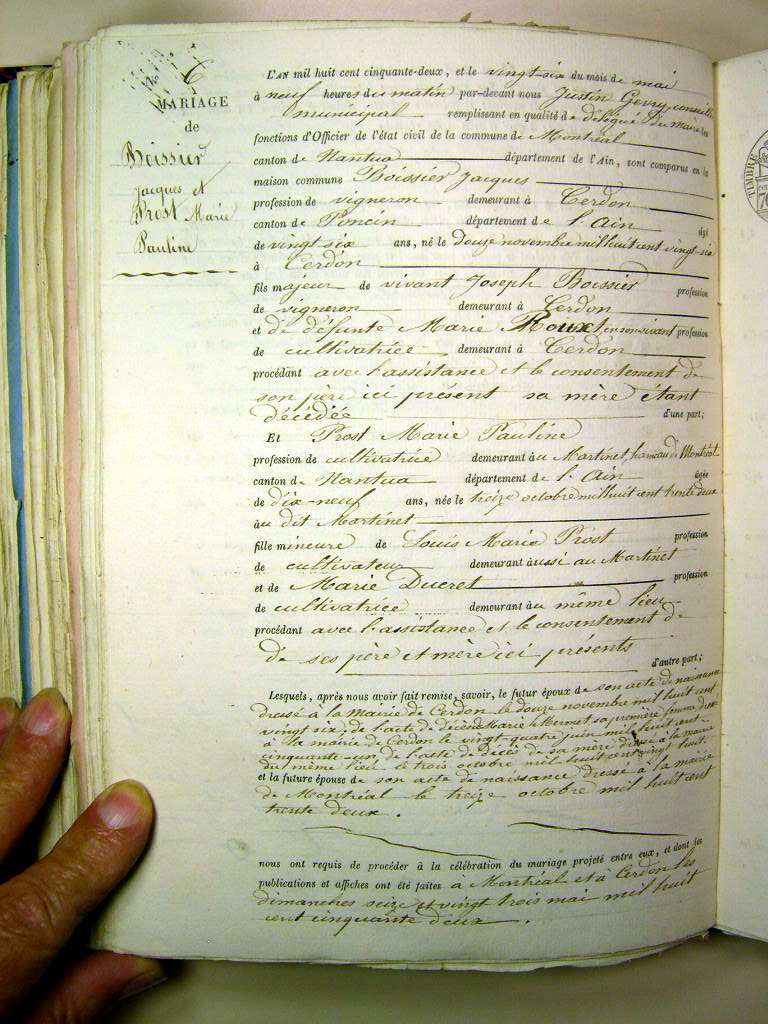 6
MARIAGE
de
Boissier
Jacques et
Prost Marie
Pauline
L'AN mil huit cent cinquante-deux, et le vingt-six du mois de mai
à neuf heures du matin par-devant nous Justin Gevry, conseiller
municipal remplissant en qualité de délégué du maire les
fonctions d'Officier de l'état civil de la commune de Montréal
canton de Nantua département de l'Ain, sont comparus en la
maison commune Boissier Jacques
profession de vigneron demeurant à Cerdon
canton de Poncin département de l'Ain âgé
de vingt-six ans, né le douze novembre mil huit cent vingt-six
à Cerdon
fils majeur de vivant Joseph Boissier profession
de vigneron demeurant à Cerdon
et de défunte Marie Roux en son vivant profession
de cultivatrice demeurant à Cerdon
procédant avec l'assistance et le consentement de
son père ici présent sa mère étant
décédée d'une part;
Et Prost Marie Pauline
profession de cultivatrice demeurant au Martinet, hameau de Montréal
canton de Nantua département de l'Ain âgée
de dix-neuf ans, née le treize octobre mil huit cent trente deux
au dit Martinet
fille mineure de Louis Marie Prost profession
de cultivateur demeurant aussi au Martinet
et de Marie Ducret profession
de cultivatrice demeurant au même lieu
procédant avec l'assistance et le consentement de
de ses père et mère ici présents
d'autre part;
Lesquels, après nous avoir fait remise, savoir, le futur époux de son acte de naissance
dressé à la Mairie de Cerdon le douze novembre mil huit cent
vingt six, de l'acte de décès de Marie Mermet sa première femme dressé
à la mairie de Cerdon le vingt-quatre juin mil huit cent
cinquante-un, de l'acte de décès de sa mère dressé à la mairie
du même lieu le trois octobre mil huit cent vingt huit
et la future épouse de son acte de naissance dressé à la mairie
de Montréal le treize octobre mil huit cent
trente deux.
nous ont requis de procéder à la célébration du mariage projeté entre eux, et dont les
publications et affiches ont été faites à Montréal et à Cerdon les
dimanches seize et vingt trois mai mil huit
cent cinquante deux.
TIMBRE